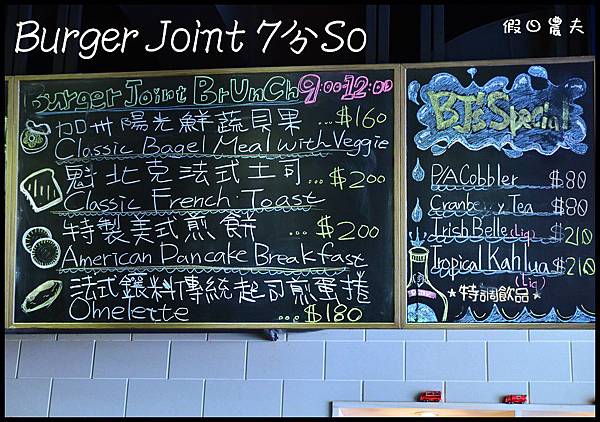 Burger Joint 7分So
假日農夫
Burger Joint BrUnCh 9:00-12:00
加州陽光鮮蔬貝果 ...$160
Classic Bagel Meal with Veggie
魁北克法式土司 ...$200
Classic French Toast
特製美式煎餅 ...$200
American Pancake Breakfast
法式鑲料傳統起司煎蛋捲
Omelette ...$180
BJ's Special
P/A Cobbler $80
Cranberry Tea $80
Irish Belle (Liq) $210
Tropical Kahlua $210
(Liq)
★特調飲品★